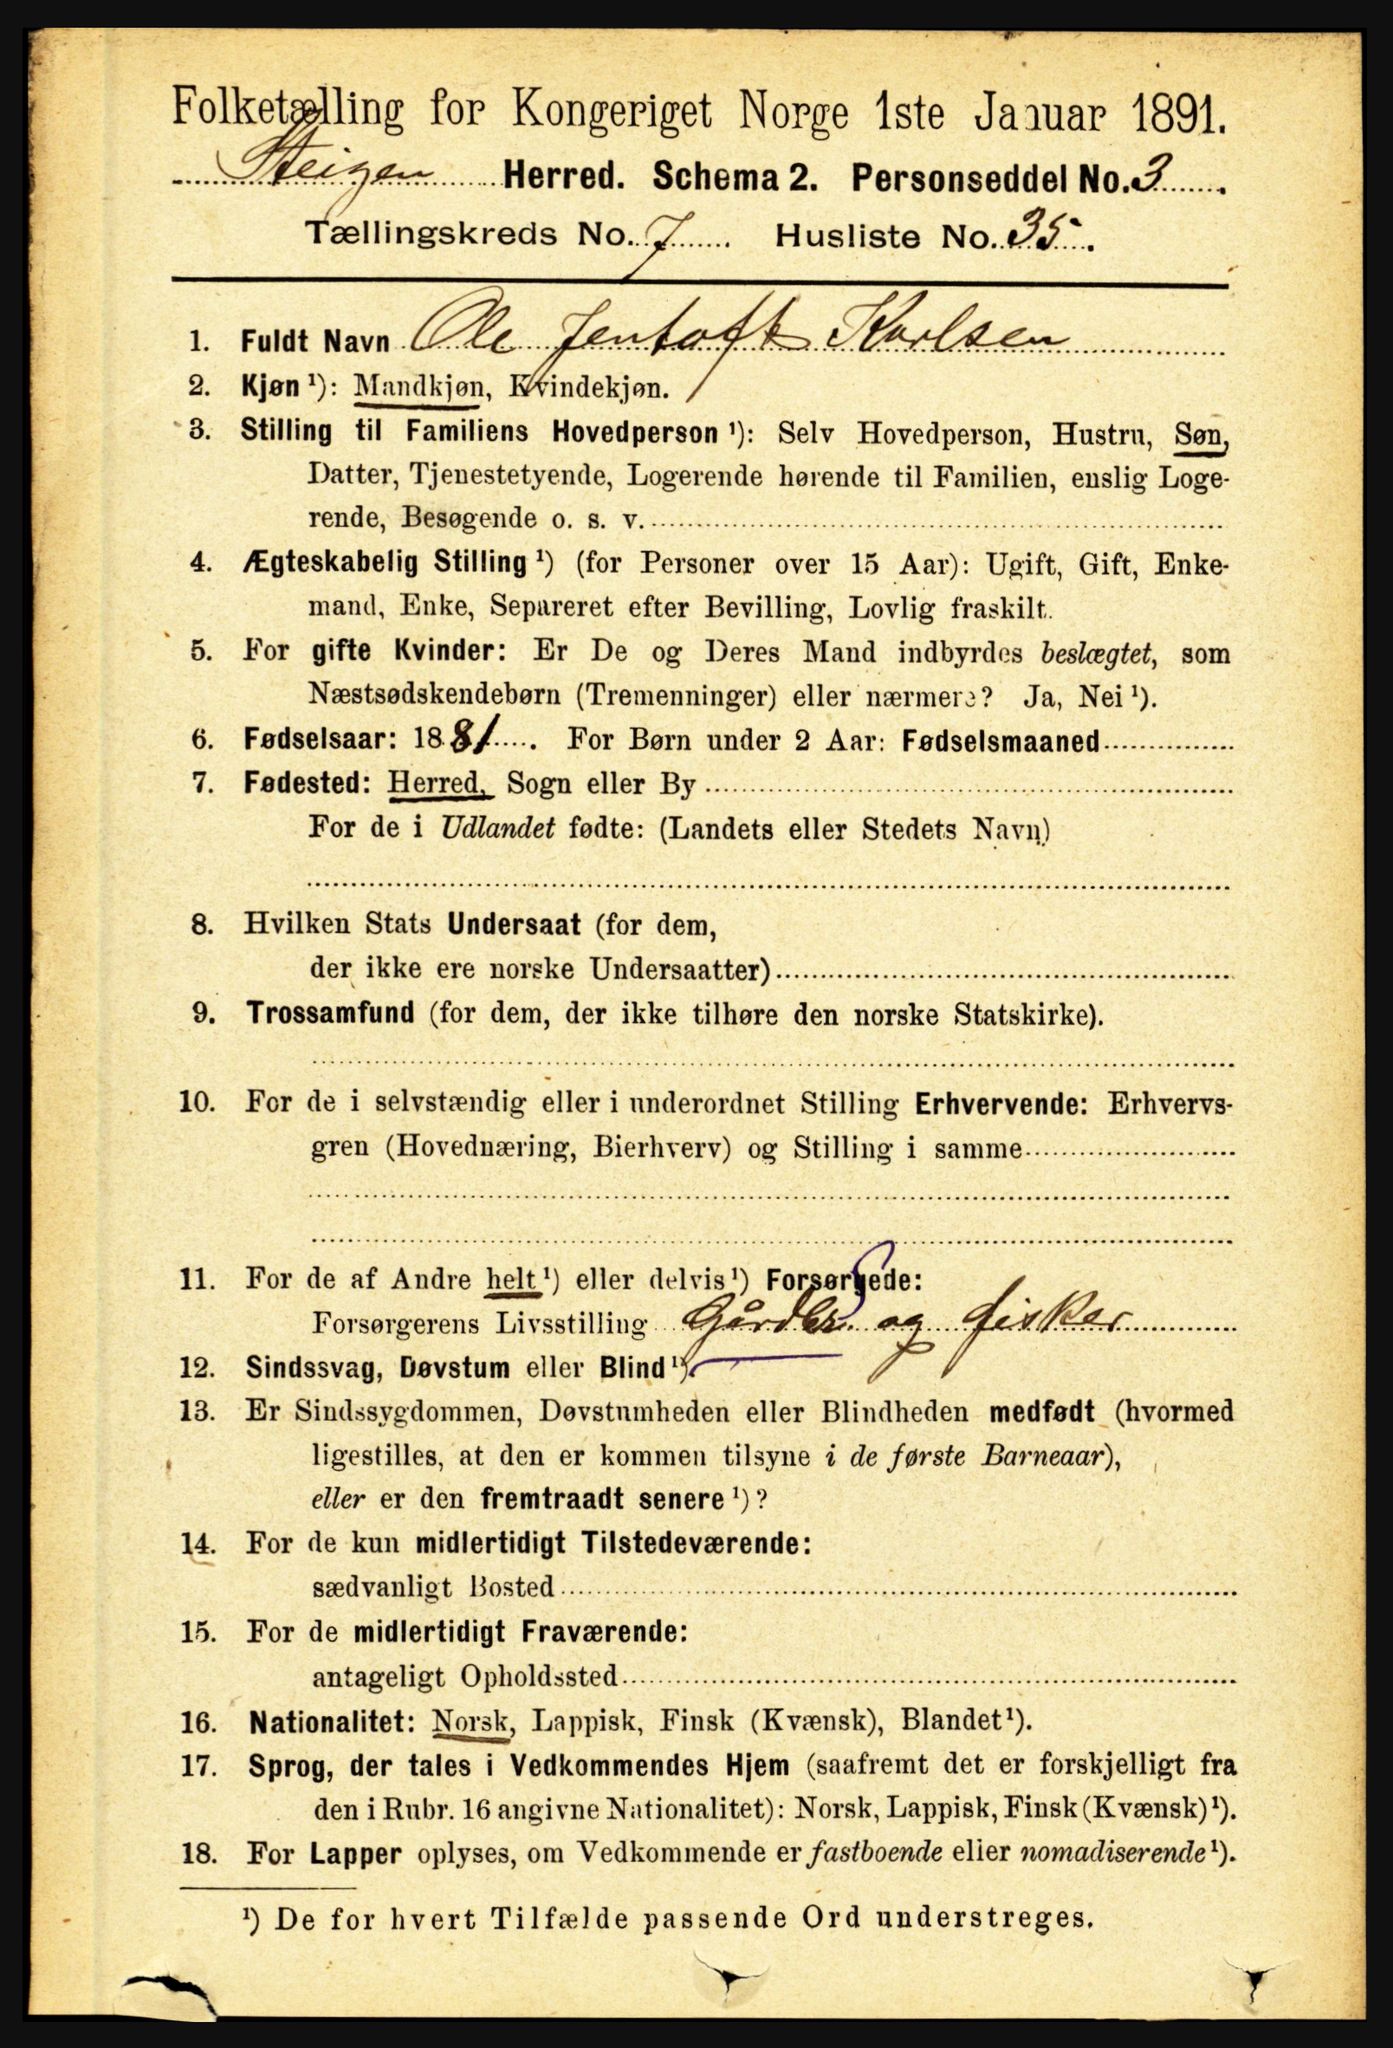 Folketælling for Kongeriget Norge 1ste Januar 1891.
Steigen Herred. Schema 2. Personseddel No. 3
Tællingskreds No. 7 Husliste No. 35.
1. Fuldt Navn Ole Jentoft Karlsen
2. Kjøn ¹): Mandkjøn, Kvindekjøn.
3. Stilling til Familiens Hovedperson ¹): Selv Hovedperson, Hustru, Søn,
Datter, Tjenestetyende, Logerende hørende til Familien, enslig Loge-
rende, Besøgende o. s. v.
4. Ægteskabelig Stilling ¹) (for Personer over 15 Aar): Ugift, Gift, Enke-
mand, Enke, Separeret efter Bevilling, Lovlig fraskilt.
5. For gifte Kvinder: Er De og Deres Mand indbyrdes beslægtet, som
Næstsødskendebørn (Tremenninger) eller nærmere? Ja, Nei ¹).
6. Fødselsaar: 1881. For Børn under 2 Aar: Fødselsmaaned
7. Fødested: Herred, Sogn eller By
For de i Udlandet fødte: (Landets eller Stedets Navn)
8. Hvilken Stats Undersaat (for dem,
der ikke ere norske Undersaatter)
9. Trossamfund (for dem, der ikke tilhøre den norske Statskirke).
10. For de i selvstændig eller i underordnet Stilling Erhvervende: Erhvervs-
gren (Hovednæring, Bierhverv) og Stilling i samme
11. For de af Andre helt ¹) eller delvis ¹) Forsørgede:
Forsørgerens Livsstilling Gårdbr. og fisker
12. Sindssvag, Døvstum eller Blind ¹).
13. Er Sindssygdommen, Døvstumheden eller Blindheden medfødt (hvormed
ligestilles, at den er kommen tilsyne i de første Barneaar),
eller er den fremtraadt senere ¹)?
14. For de kun midlertidigt Tilstedeværende:
sædvanligt Bosted
15. For de midlertidigt Fraværende:
antageligt Opholdssted
16. Nationalitet: Norsk, Lappisk, Finsk (Kvænsk), Blandet ¹).
17. Sprog, der tales i Vedkommendes Hjem (saafremt det er forskjelligt fra
den i Rubr. 16 angivne Nationalitet): Norsk, Lappisk, Finsk (Kvænsk) ¹).
18. For Lapper oplyses, om Vedkommende er fastboende eller nomadiserende ¹).
¹) De for hvert Tilfælde passende Ord understreges.